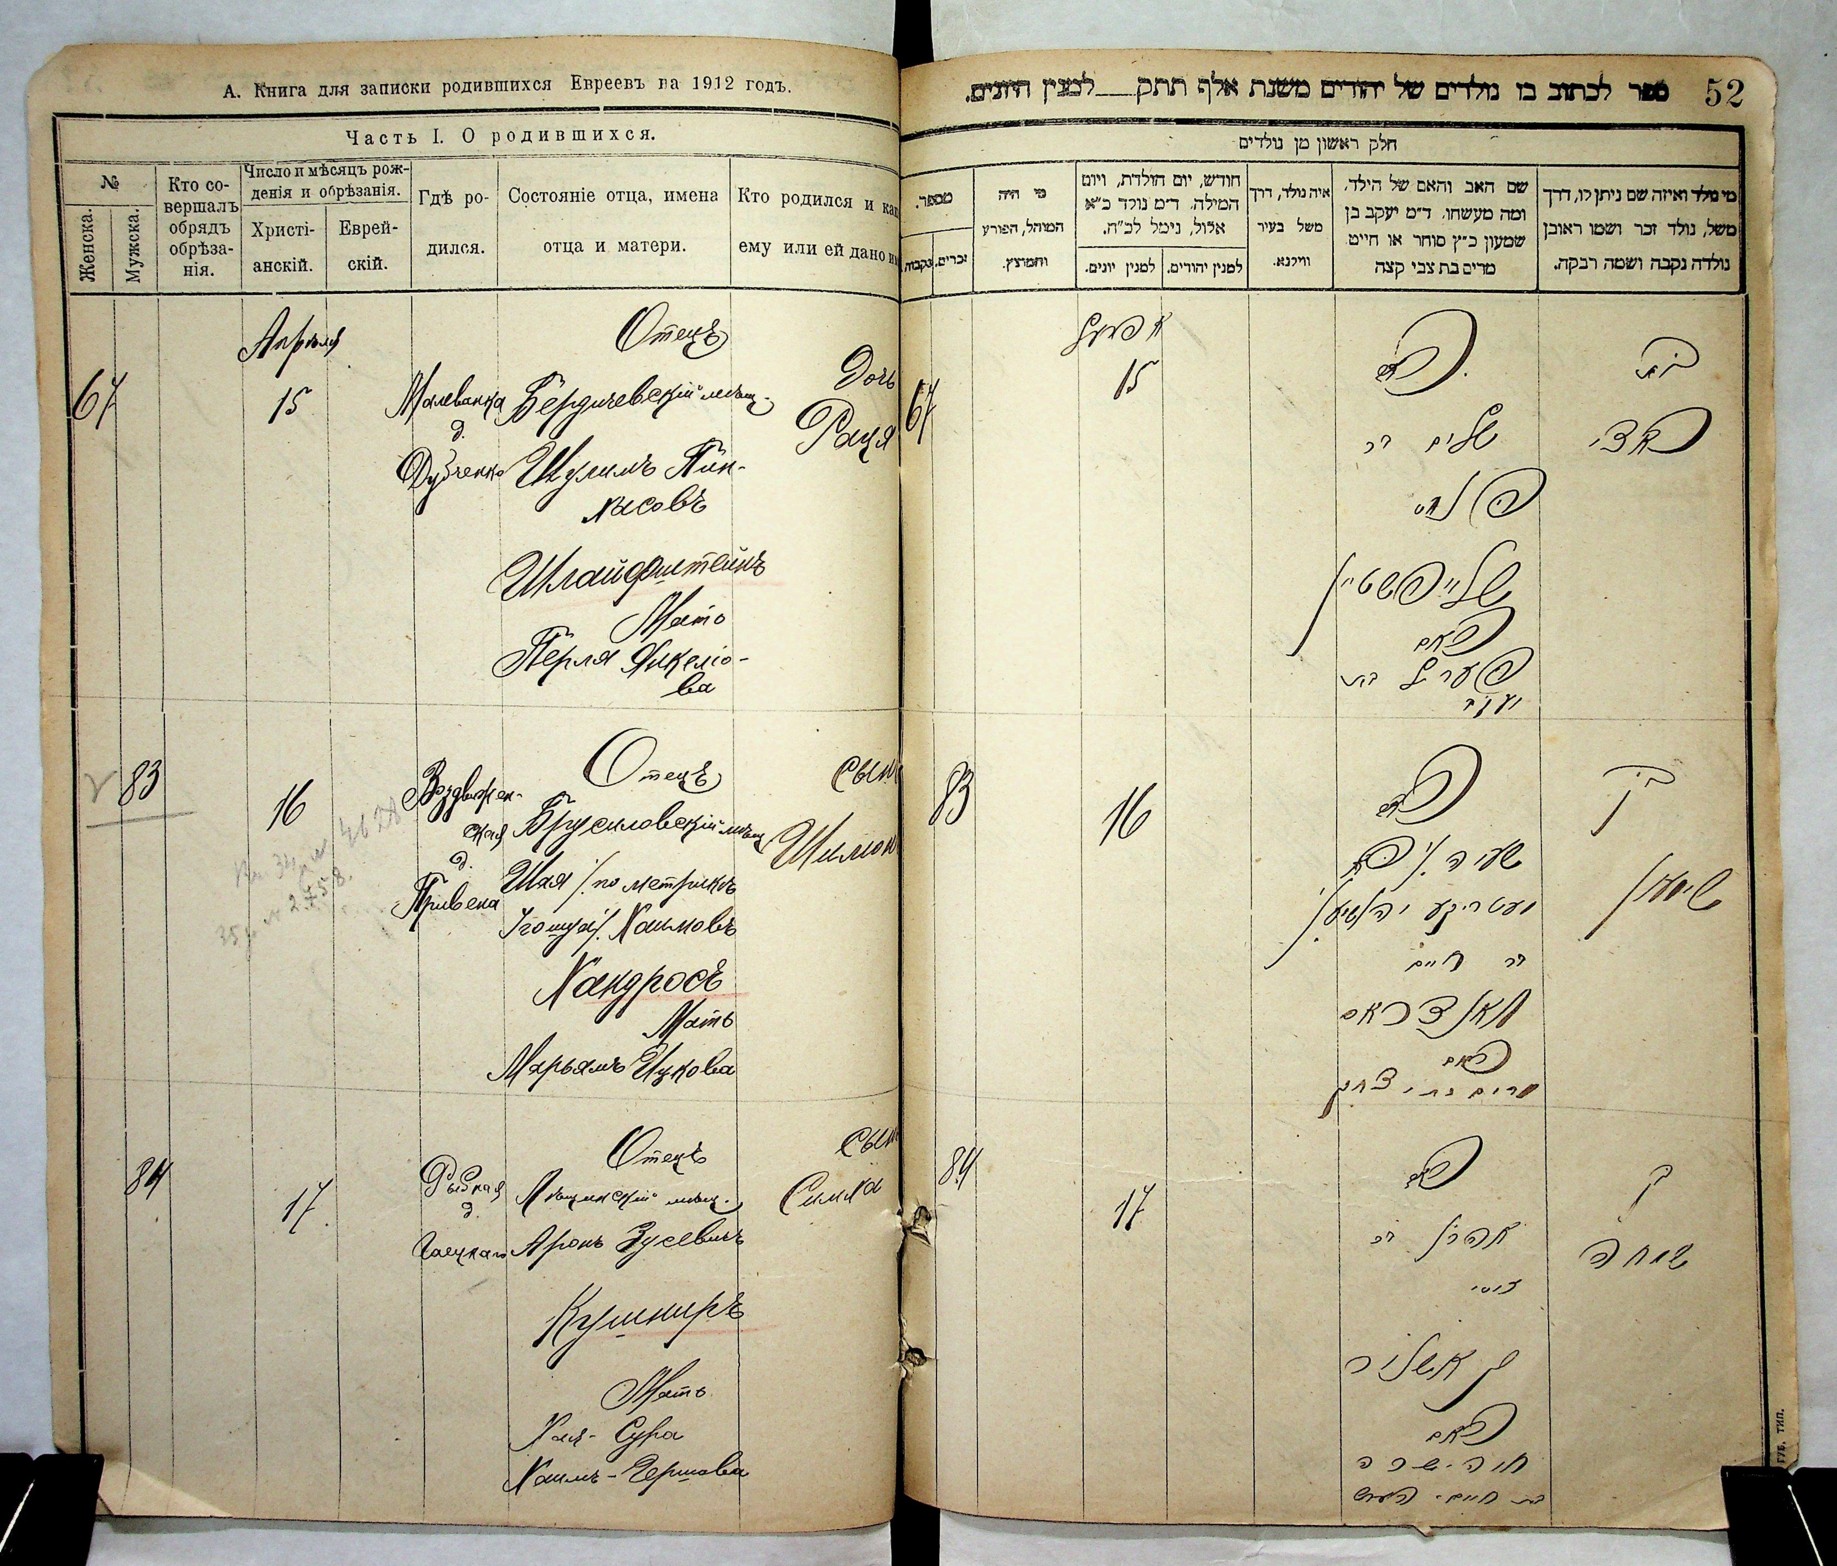 А. Книга для записки родившихся Евреевъ на 1912 годъ.
Часть I. О родившихся.
№
Женска.
Мужска.
Кто со-
вершалъ
обрядъ
обрѣза-
нія.
Число и мѣсяцъ рож-
денія и обрѣзанія.
Христі-
анскій.
Еврей-
скій.
Гдѣ ро-
дился.
Состояніе отца, имена
отца и матери.
Кто родился и как
ему или ей дано
67
Апрѣля
15
Малеванка
д.
Дубченко
Отецъ
Бердичевскій мѣщ.
Шулимъ Пин-
хасовъ
Шлайфштейнъ
Мать
Перля Янкеліо-
ва
Дочь
Раця
83
16
Воздвижен-
ская
д.
Привена
Отецъ
Брусиловскій мѣщ
Шая /по метрикѣ
Іошуа/ Хаимовъ
Хандросъ
Мать
Марьямъ Ицкова
сынъ
Шимон
2758.
84
17
Рыбная
д.
Отецъ
мѣщ.
Аронъ Зусевичъ
Кушниръ
Мать
Хая-Сура
Хаимъ-Гершова
сын
Симха
ספר לכתוב בו נולדים של יהודים משנת אלף תתק למנין היונים.
52
חלק ראשון מן נולדים
מספר.
נקבות
זכרים.
מי היה
המוהל, הפורע
והמוצץ.
חודש, יום הולדת, ויום
המילה. ד״מ נולד כ״א
אלול, נימל לכ״ח.
למנין יונים.
למנין יהודים.
איה נולד, דרך
משל בעיר
ווילנא.
שם האב והאם של הילד,
ומה מעשהו, ד״מ יעקב בן
שמעון כ״ץ סוחר או חייט
מרים בת צבי קצה
מי נולד ואיזה שם ניתן לו, דרך
משל, נולד זכר ושמו ראובן
נולדה נקבה ושמה רבקה.
67
אפריל
15
האב
שלום בר
פנחס
שלייפשטיין
האם
פערל בת
יעקב
בת
83
16
האב
שעיה /ע״פ
מעטריקע יהושע/
בר חיים
חאנדראס
האם
מרים בת יצחק
בן
שימון
84
17
האב
אהרן בר
זוסי
קושניר
האם
חיה-שרה
בת חיים-הערש
בן
שמחה
ГУБ. ТИП.